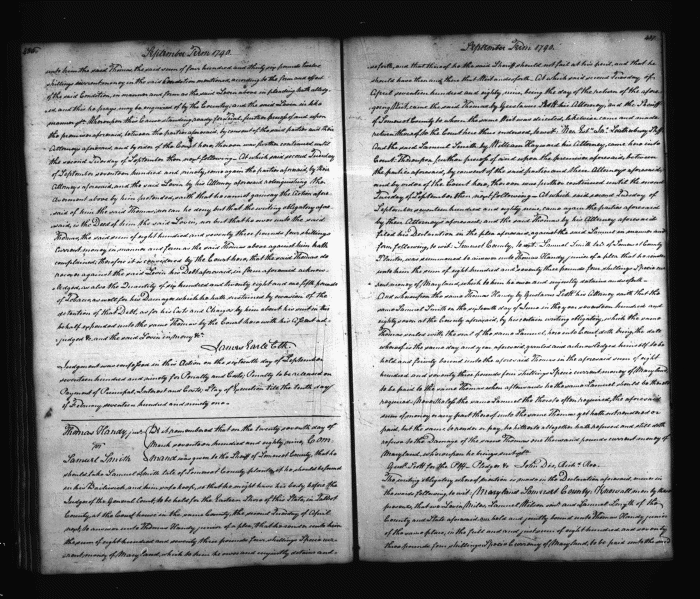 September Term 1790.
unto him the said Thomas, the said sum of four hundred and thirty six pounds twelve
shillings current money in the said Condition mentioned, according to the form and effect
of the said Condition, in manner and form as the said Levin above in pleading hath alledg-
ed, and this he prays may be enquired of by the Country; and the said Levin in like
manner &c. Whereupon this Cause standing ready for Trial, further proof of and upon
the premises aforesaid, between the parties aforesaid, by consent of the said parties and their
Attornies aforesaid, and by order of the Court here, thereon was further continued until
the second Tuesday of September then next following. At which said second Tuesday
of September seventeen hundred and ninety, come again the parties aforesaid, by their
Attornies aforesaid, and the said Levin by his Attorney aforesaid relinquishing the
Averment above by him pretended, saith that he cannot gainsay the Action afore-
said of him the said Thomas, nor can he deny but that the writing obligatory afore-
said, is the Deed of him the said Levin, nor but that he owes unto the said
Thomas, the said sum of eight hundred and seventy three pounds four shillings
current money, in manner and form as the said Thomas above against him hath
complained; therefore it is considered by the Court here, that the said Thomas do
recover against the said Levin his Debt aforesaid, in form aforesaid acknow-
ledged, as also the Quantity of six hundred and twenty eight and one fifth pounds
of Tobacco as well for his Damages which he hath sustained by occasion of the
detention of that Debt, as for his Costs and Charges by him about his suit in this
behalf expended unto the same Thomas by the Court here with his Assent ad-
judged &c. and the said Levin in mercy &c.
James Earle Clk.
Judgment was confessed in this Action on the sixteenth day of September
seventeen hundred and ninety for Penalty and Costs, Penalty to be released on
Payment of Principal, Interest and Costs, Stay of Execution till the tenth day
of February seventeen hundred and ninety one.
Thomas Handy, junr. Be it remembered that on the twenty seventh day of
vs. March seventeen hundred and eighty nine, Com-
Samuel Smith mand was given to the Sheriff of Somerset County, that he
should take Samuel Smith late of Somerset County, planter, if he should be found
in his Bailiwick and him safe keep, so that he might have his body before the
Judges of the General Court, to be held for the Eastern Shore of this State, in Talbot
County, at the Court house in the same County, the second Tuesday of April
next, to answer unto Thomas Handy, junior of a plea, that he render unto him
the sum of eight hundred and seventy three pounds four shillings Specie cur-
rent money of Maryland, which to him he owes and unjustly detains and
September Term 1790.
so forth, and that thereof he the said Sheriff should not fail at his peril, and that he
should have then and there that Writ and so forth. At which said second Tuesday of
April seventeen hundred and eighty nine, being the day of the return of the afore-
going Writ, came the said Thomas by Gustavus Scott his Attorney, and the Sheriff
of Somerset County to whom the same Writ was directed, likewise came and made
return thereof to the Court here thus endorsed, to wit:
And the said Samuel Smith by William Hayward his Attorney, came here into
Court. Thereupon further proof of and upon the premises aforesaid, between
the parties aforesaid, by consent of the said parties and their Attornies aforesaid,
and by order of the Court here, thereon was further continued until the second
Tuesday of September then next following. At which said second Tuesday of
September seventeen hundred and eighty nine, came again the parties aforesaid
by their Attornies aforesaid, and the said Thomas by his Attorney aforesaid
filed his Declaration in the plea aforesaid, against the said Samuel in manner and
form, following, to wit: Somerset County, to wit: Samuel Smith late of Somerset County
Planter, was summoned to answer unto Thomas Handy, junior of a plea that he render
unto him the sum of eight hundred and seventy three pounds four shillings Specie cur-
rent money of Maryland, which to him he owes and unjustly detains and so forth.
And whereupon the same Thomas Handy by Gustavus Scott his Attorney saith that the
same Samuel Smith on the sixteenth day of June in the year seventeen hundred and
eighty seven at the County aforesaid, by his certain writing obligatory, which the same
Thomas seals with the seal of the same Samuel, here into Court doth bring, the date
whereof is the same day and year aforesaid, granted and acknowledged himself to be
held and firmly bound unto the aforesaid Thomas in the aforesaid sum of eight
hundred and seventy three pounds four shillings Specie current money of Maryland,
to be paid to the same Thomas when afterwards he the same Samuel should be thereto
required. Nevertheless the same Samuel tho' thereto often required, the aforesaid
sum of money or any part thereof unto the same Thomas yet hath not rendered or
paid, but the same to render or pay, he hitherto altogether hath refused and still doth
refuse to the Damage of the said Thomas one thousand pounds current money of
Maryland, whereupon he brings suit &c.
Gust. Scott for the Plff. Pledges &c. John Doe, Richd. Roe.
The writing obligatory whereof mention is made in the Declaration aforesaid, ensues in
the words following, to wit: Maryland Somerset County. Know all men by these
presents, that we Levin Miles, Samuel Wilson and Samuel Smyth of the
County and State aforesaid are held and jointly bound unto Thomas Handy, junior
of the same place, in the full and just sum of eight hundred and seven ty
three pounds four shillings Specie Currency of Maryland, to be paid unto the said